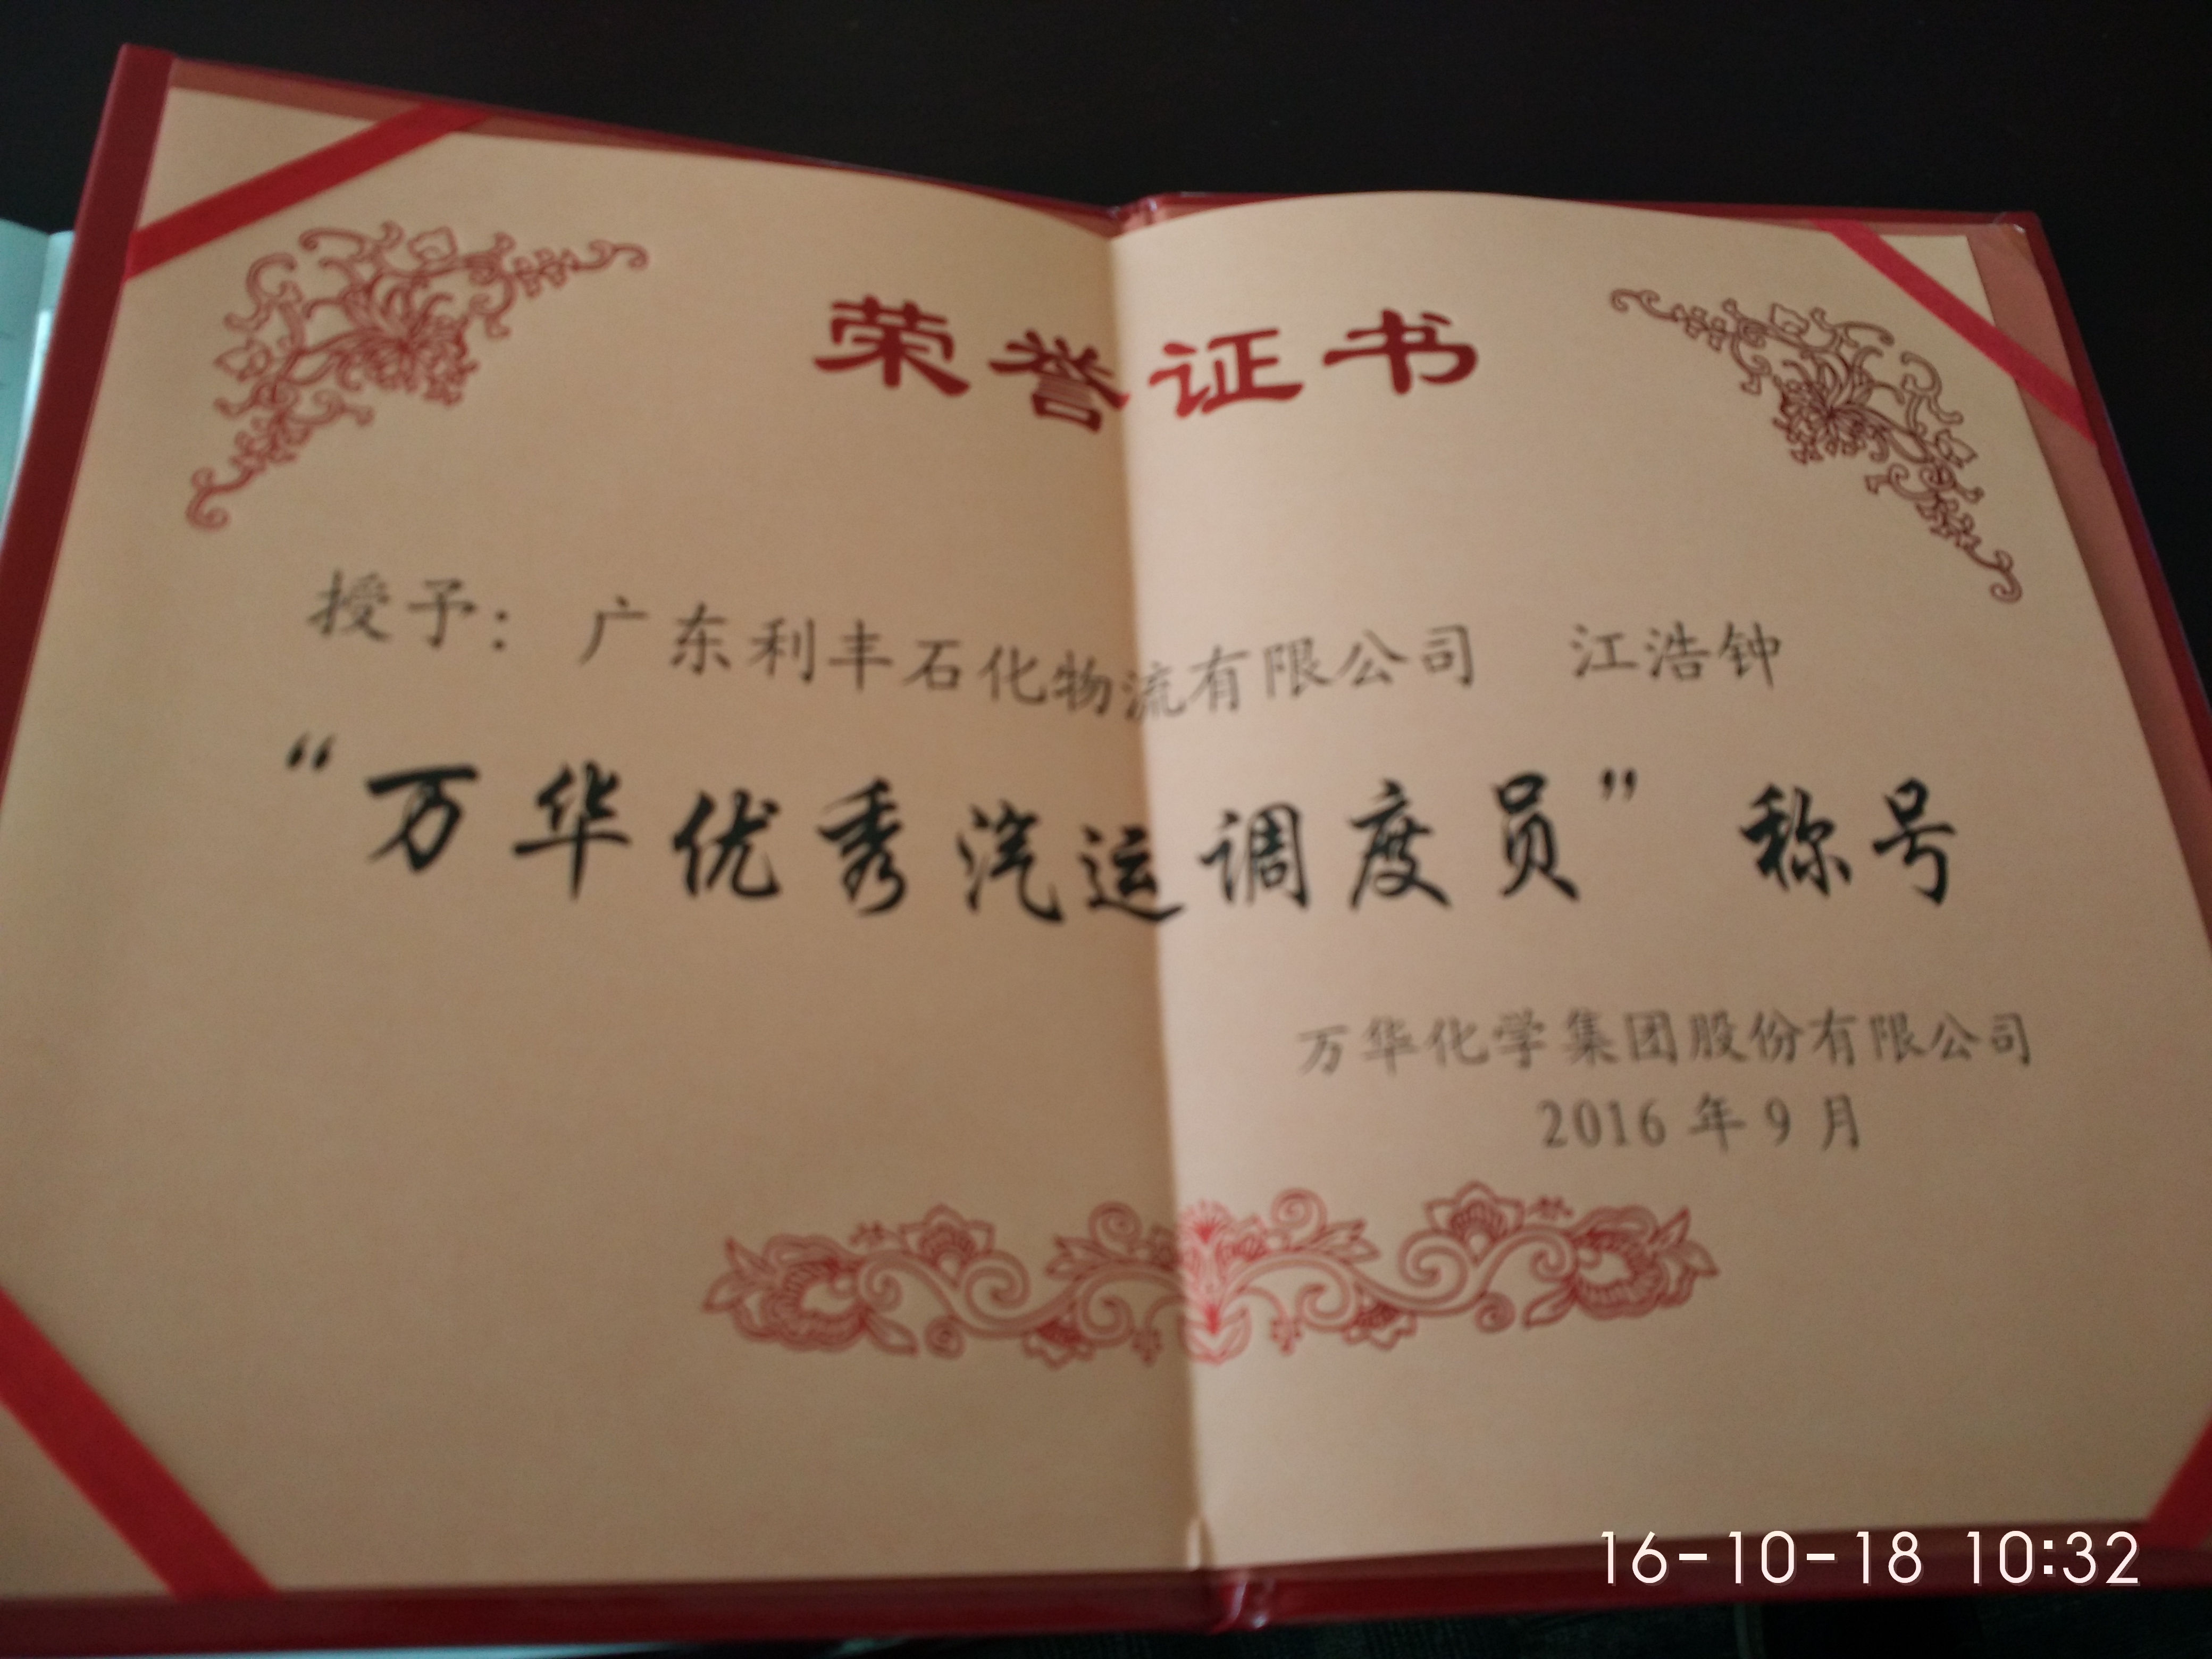 荣誉证书
授予：广东利丰石化物流有限公司 江浩钟
“万华优秀汽运调度员”称号
万华化学集团股份有限公司
2016年9月
16-10-18 10:32